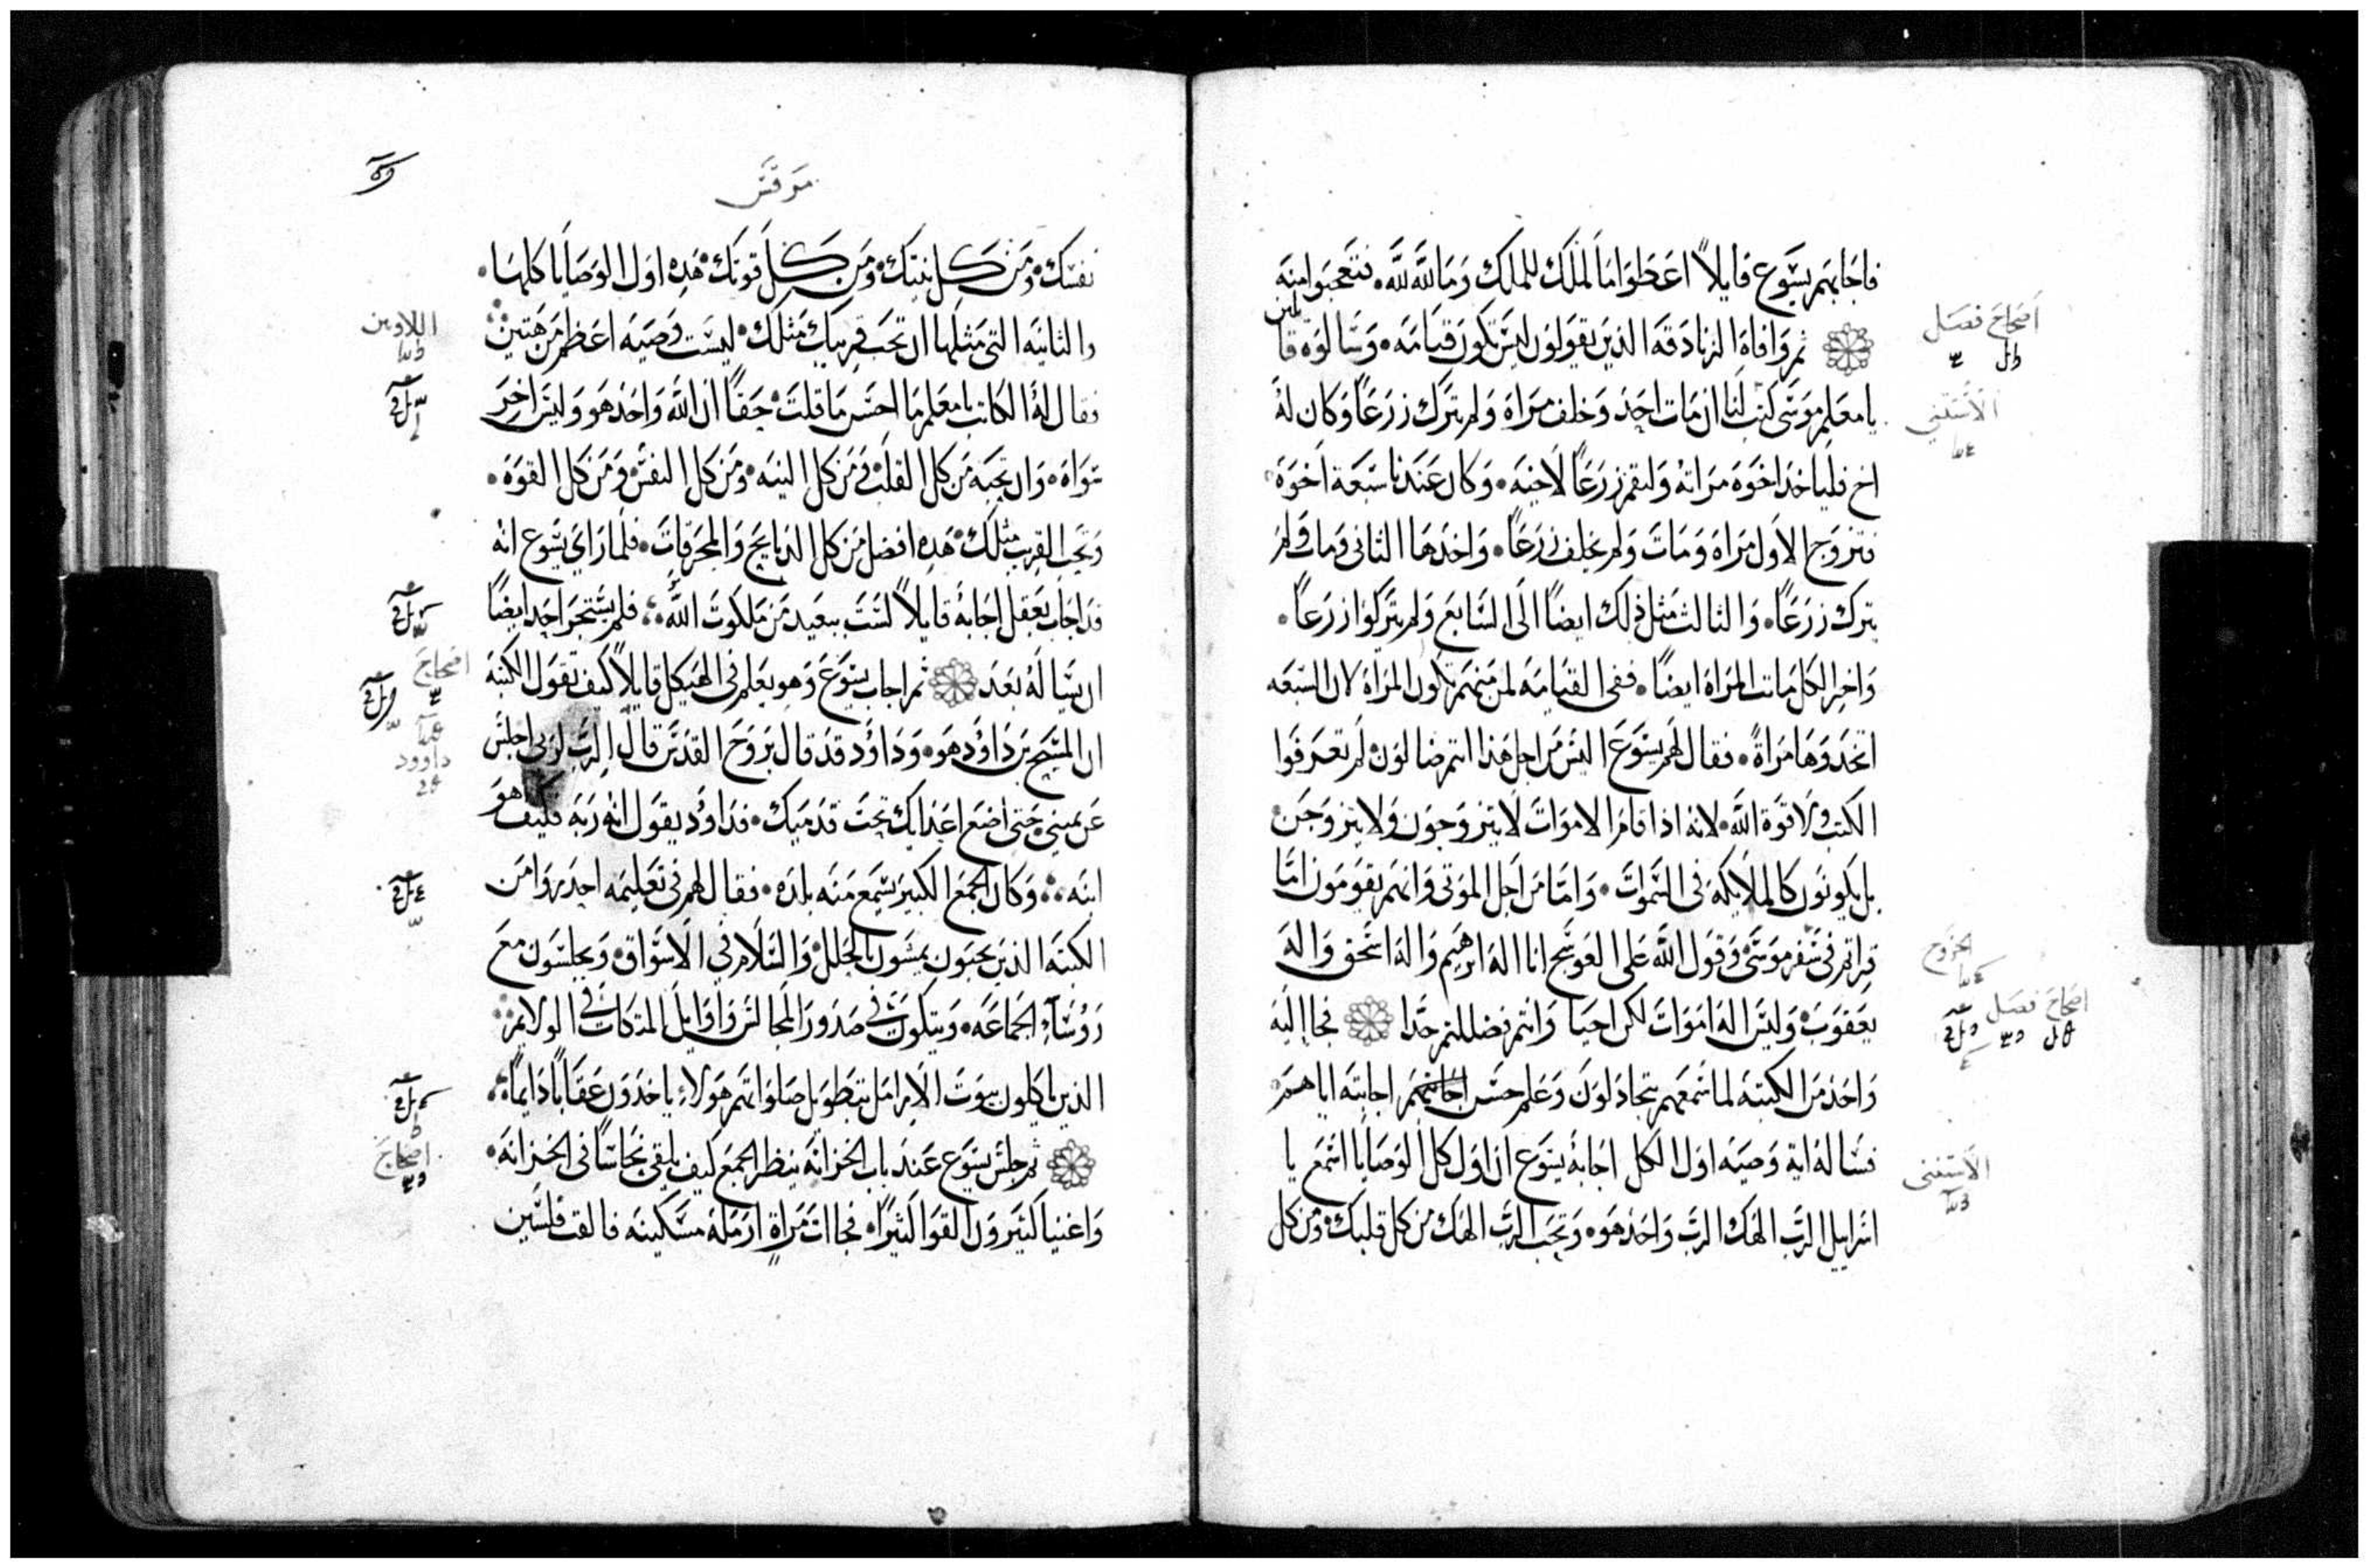 فاجابهم يسوع قايلاً اعطوا ما لملك للملك وما لله لله. فتعجبوا منه
ثم وافاه الزنادقه الذين يقولون ليس تكون قيامه. وسالوه قايلين
يا معلم موسى كتب لنا ان مات احد وخلف مراه ولم يترك زرعاً وكان له
اخ فلياخد اخوه مراته وليقم زرعاً لاخيه. وكان عندنا سبعة اخوة
فتزوج الاول مراه ومات ولم يخلف زرعاً. واخدها الثاني ومات ولم
يترك زرعاً. والثالث مثل ذلك ايضاً الى السابع ولم يتركوا زرعاً.
واخر الكل ماتت المراه ايضاً. ففي القيامه لمن منهم تكون المراه لان السبعه
اتخدوها مراةً. فقال لهم يسوع اليس من اجل هذا انتم ضالون لم تعرفوا
الكتب ولا قوة الله. لانه اذا قام الاموات لا يتزوجون ولا يتزوجن.
بل يكونون كالملايكه في السموات. واما من اجل الموتى وانهم يقومون اما
قراتم في سفر موسى وقول الله على العوسج انا اله ابرهيم واله اسحق واله
يعقوب وليس اله اموات لكن احيا وانتم فضللتم جدا فجا اليه
واحد من الكتبه لما سمعهم يتجادلون وعلم حسن اجابته اياهم.
فساله اية وصيه اول الكل اجابه يسوع ان اول كل الوصايا اسمع يا
اسراييل الرب الهك الرب واحد هو. وتحب الرب الهك من كل قلبك ومن كل
اصحاح فصل
الاستثني
الخروج
اصحاح فصل
الاستثني
مرقس
نفسك. ومن كل نيتك. ومن كل قوتك. هده اول الوصايا كلها.
والثانيه التي مثلها ان تحب قريبك مثلك. ليست وصيه اعظم من هتين
فقال له الكاتب يا معلم ما احسن ما قلت. حقاً ان الله واحد هو وليس اخر
سواه. وان تحبه من كل القلب ومن كل النيه. ومن كل النفس ومن كل القوه.
وتحب القريب مثلك. هده افضل من كل الدبايح والمحرقات. فلما راي يسوع انه
قد اجاب بعقل اجابه قايلاً لست ببعيد من ملكوت الله. فلم يستجر احد ايضاً
ان يساله بعد ثم اجاب يسوع وهو يعلم في الهيكل قايلاً كيف تقول الكتبه
ان المسيح بن داود هو. وداود قد قال بروح القدس قال الرب لربي اجلس
عن يميني حتى اضع اعدايك تحت قدميك. فداود يقول انه ربه فكيف هو
ابنه. وكان الجمع الكبير يسمع منه بلده. فقال لهم في تعليمه احدروا من
الكتبه الذين يحبون يمشون بالحلل. والسلام في الاسواق. ويجلسون مع
روساء الجماعه. ويتكون في صدور المجالس واوايل المتكات في الولايم
الذين ياكلون بيوت الارامل بتطويل صلواتهم هولاء ياخدون عقاباً دايماً.
ثم جلس يسوع عند باب الخزانه ينظر الجمع كيف يلقي نحاساً في الخزانه.
واغنيا كثيرون القوا كثيراً. فجاات مراة ارمله مسكينه فالقت فلسين
اللاويين
اصحاح
داوود
اصحاح